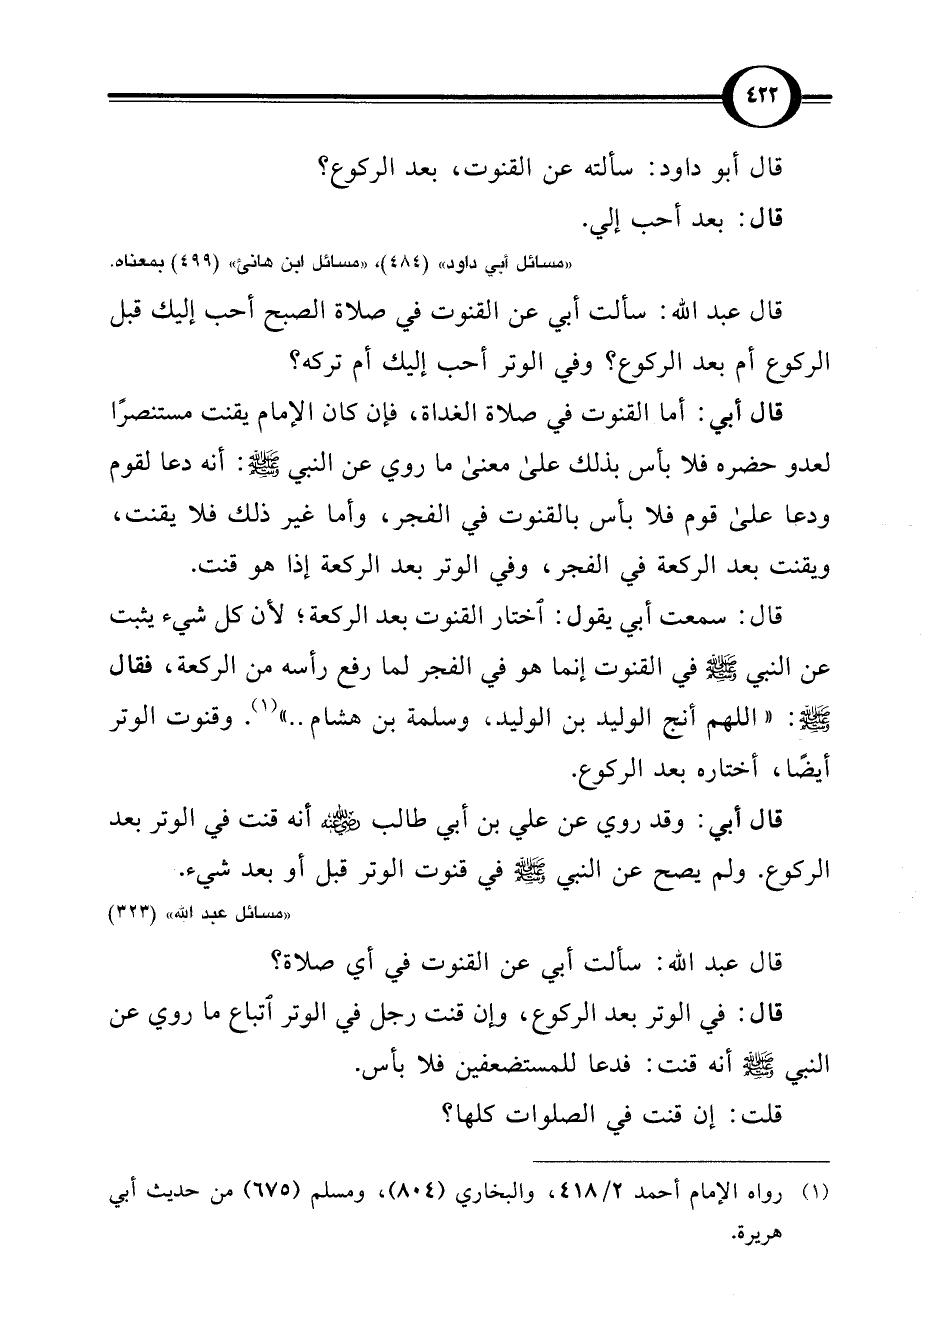 ٤٢٢
قال أبو داود: سألته عن القنوت، بعد الركوع؟
قال: بعد أحب إلي.
«مسائل أبي داود» (٤٨٤)، «مسائل ابن هانئ» (٤٩٩) بمعناه.
قال عبد الله: سألت أبي عن القنوت في صلاة الصبح أحب إليك قبل
الركوع أم بعد الركوع؟ وفي الوتر أحب إليك أم تركه؟
قال أبي: أما القنوت في صلاة الغداة، فإن كان الإمام يقنت مستنصرًا
لعدو حضره فلا بأس بذلك علىٰ معنىٰ ما روي عن النبي ﷺ: أنه دعا لقوم
ودعا علىٰ قوم فلا بأس بالقنوت في الفجر، وأما غير ذلك فلا يقنت،
ويقنت بعد الركعة في الفجر، وفي الوتر بعد الركعة إذا هو قنت.
قال: سمعت أبي يقول: ٱختار القنوت بعد الركعة؛ لأن كل شيء يثبت
عن النبي ﷺ في القنوت إنما هو في الفجر لما رفع رأسه من الركعة، فقال
ﷺ: «اللهم أنج الوليد بن الوليد، وسلمة بن هشام ..»(١). وقنوت الوتر
أيضًا، أختاره بعد الركوع.
قال أبي: وقد روي عن علي بن أبي طالب رضي الله عنه أنه قنت في الوتر بعد
الركوع. ولم يصح عن النبي ﷺ في قنوت الوتر قبل أو بعد شيء.
«مسائل عبد الله» (٣٢٣)
قال عبد الله: سألت أبي عن القنوت في أي صلاة؟
قال: في الوتر بعد الركوع، وإن قنت رجل في الوتر ٱتباع ما روي عن
النبي ﷺ أنه قنت: فدعا للمستضعفين فلا بأس.
قلت: إن قنت في الصلوات كلها؟
(١) رواه الإمام أحمد ٢/ ٤١٨، والبخاري (٨٠٤)، ومسلم (٦٧٥) من حديث أبي
هريرة.